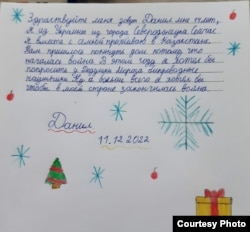 Здравствуйте меня зовут Данил мне лет,
Я из Украины из города Северодонецка Сейчас
Я вместе с семьёй проживаю в Казахстане.
Нам пришлось покинуть дом потому что
началась война В этом году я хотел бы
попросить у Дедушки Мороза беспроводные
наушники Ну а больше всего я хотел бы
чтобы в моей стране закончилась война.
Данил
11.12.2022
Courtesy Photo